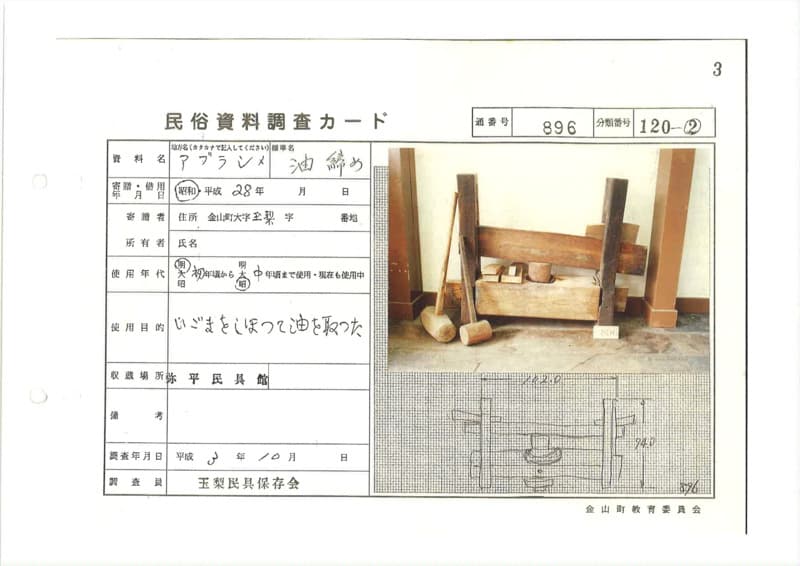 3
民俗資料調査カード
通番号 896 分類番号 120-②
資料名 地方名(カタカナで記入してください) アブラシメ 標準名 油締め
寄贈・借用年月日 昭和・平成 28年 月 日
寄贈者 住所 金山町大字玉梨字 番地
所有者 氏名
使用年代 明大昭 初年頃から 明大昭 中年頃まで使用・現在も使用中
使用目的 じごまをしぼって油を取った
収蔵場所 弥平民具館
備考
調査年月日 平成 3年 10月 日
調査員 玉梨民具保存会
102.0
94.0
896
金山町教育委員会